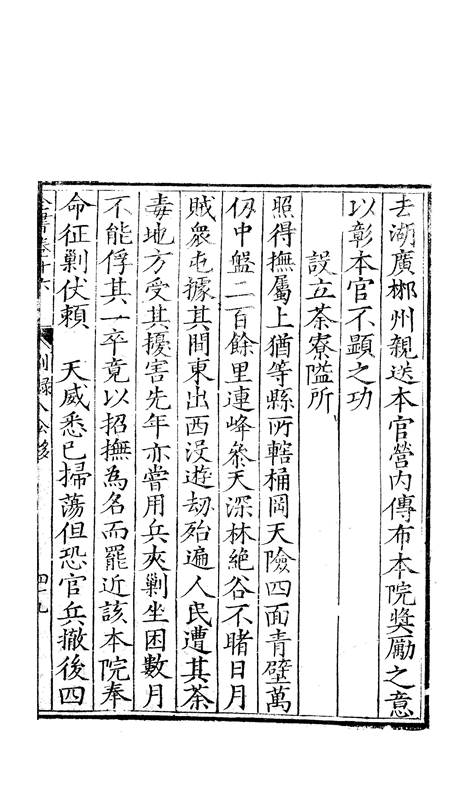 去湖廣郴州親送本官營內傳布本院奬勵之意
以彰本官不顯之功
設立茶寮隘所
照得撫屬上猶等縣所轄桶岡天險四面青壁萬
仞中盤二百餘里連峰參天深林絕谷不睹日月
賊衆屯據其間東出西沒遊劫殆遍人民遭其荼
毒地方受其擾害先年亦嘗用兵夾剿坐困數月
不能俘其一卒竟以招撫為名而罷近該本院奉
命征剿伏賴　天威悉已掃蕩但恐官兵撤後四
全書卷十六　別錄八　公移　四十九